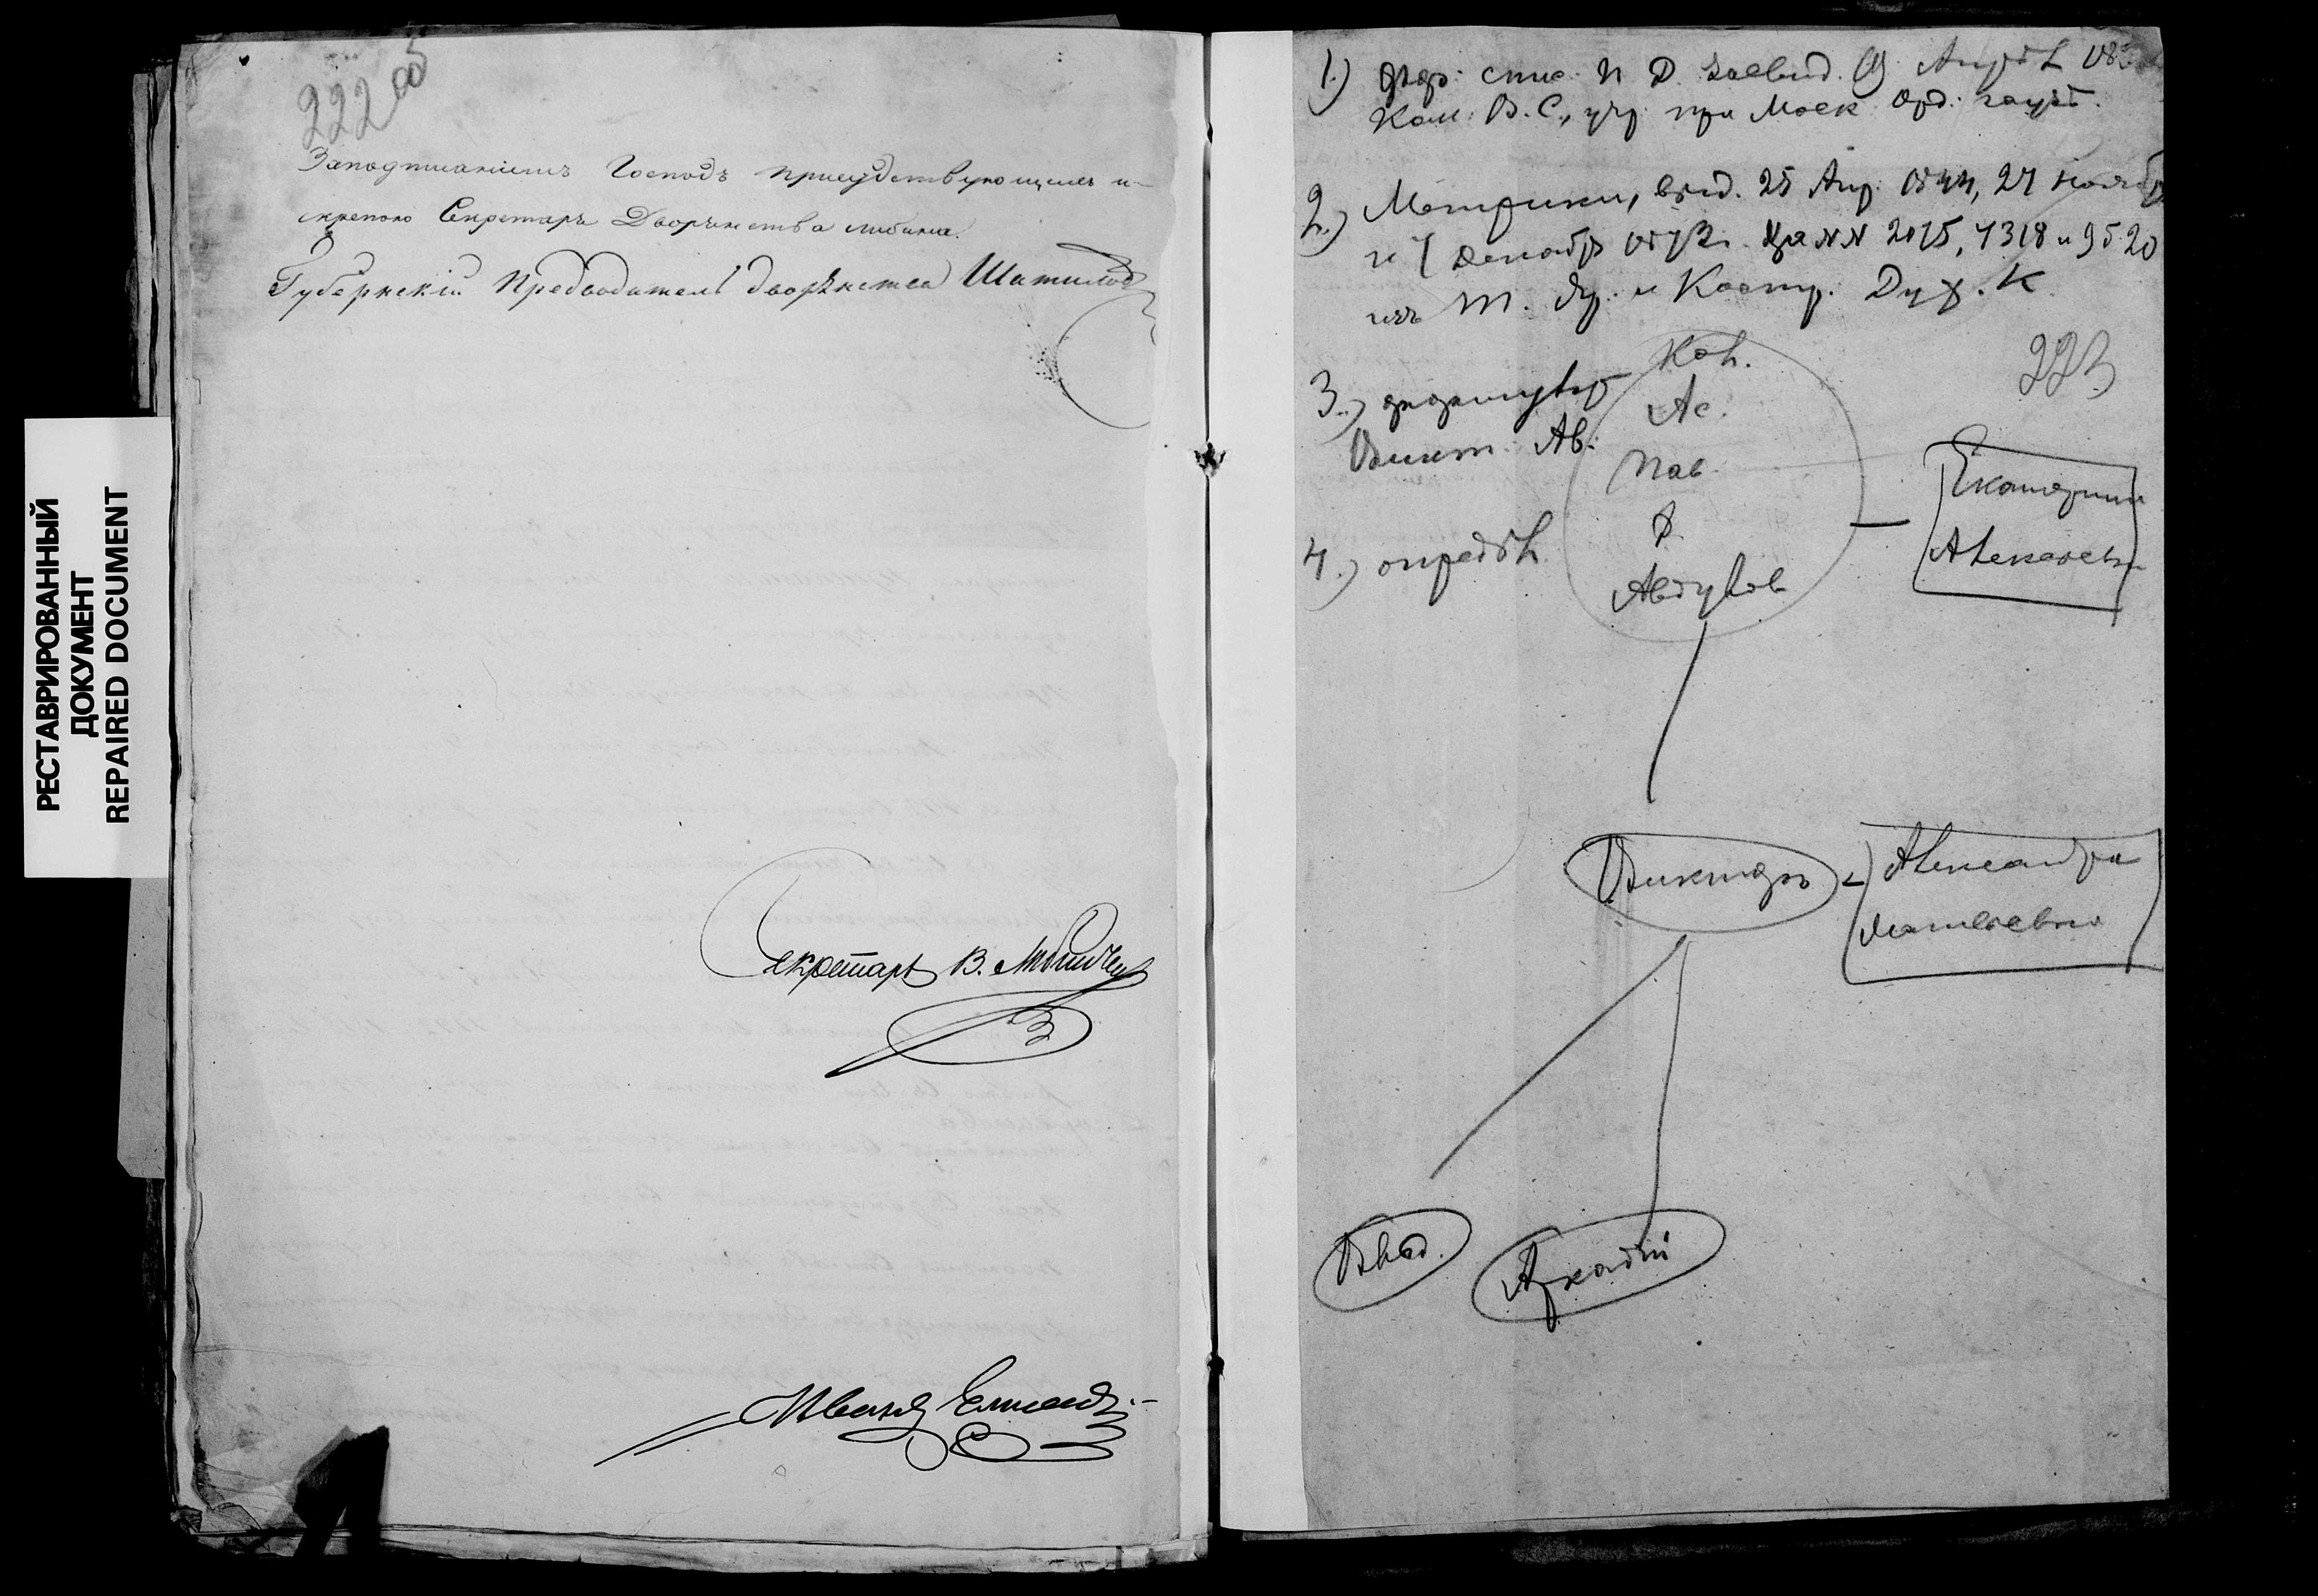 РЕСТАВРИРОВАННЫЙ
ДОКУМЕНТ
REPAIRED DOCUMENT
222 об
Заподписаніемъ Господъ присудствующихъ и
скрепою Секретаря Дворянства
Губернскій Предводитель дворянства Шатиловъ
Секретарь В.
Иванъ
1.) фор: спис. П. Д.
Ком. В. С., учр при Моск Орд: гауз.
2.) Метрики, выд. 25 Апр. 1844, 27 Ноябр
и 7 Декабр за NN 2015, 7318 и 9520
изъ Т. Яр. и Костр. Дух. К
223
3.)
Викт. Ав:
4.) опредѣл.
Кол.
Ас.
Пав.
Ф.
Авдулов
Екатерина
Алексеевн
Викторъ
Александра
Матвѣевна
Влад.
Аркадій